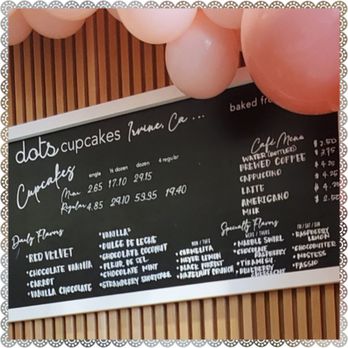 dots cupcakes Irvine, Ca ...
baked fro
Cupcakes
single ½ dozen dozen 4 regular
Mini 2.65 17.10 29.15
Regular 4.85 29.10 53.35 19.40
Café Menu
WATER (BOTTLED) $2.50
BREWED COFFEE
CAPPUCCINO
LATTE
AMERICANO
MILK
Daily Flavors
• RED VELVET
• CHOCOLATE VANILLA
• CARROT
• VANILLA CHOCOLATE
• VANILLA²
• DULCE DE LECHE
• CHOCOLATE COCONUT
• FLEUR DE SEL
• CHOCOLATE MINT
• STRAWBERRY SHORTCAKE
Specialty Flavors
MON / TUE
• CARMELITA
• MEYER LEMON
• BLACK FOREST
• HAZELNUT CRUNCH
WED / THURS
• MARBLE SWIRL
• CHOCOLATE RASPBERRY
• TIRAMISU
• BLUEBERRY
FRI / SAT / SUN
• RASPBERRY LEMON
• CHOCOBUTTER
• MOSTESS
• PASSIO